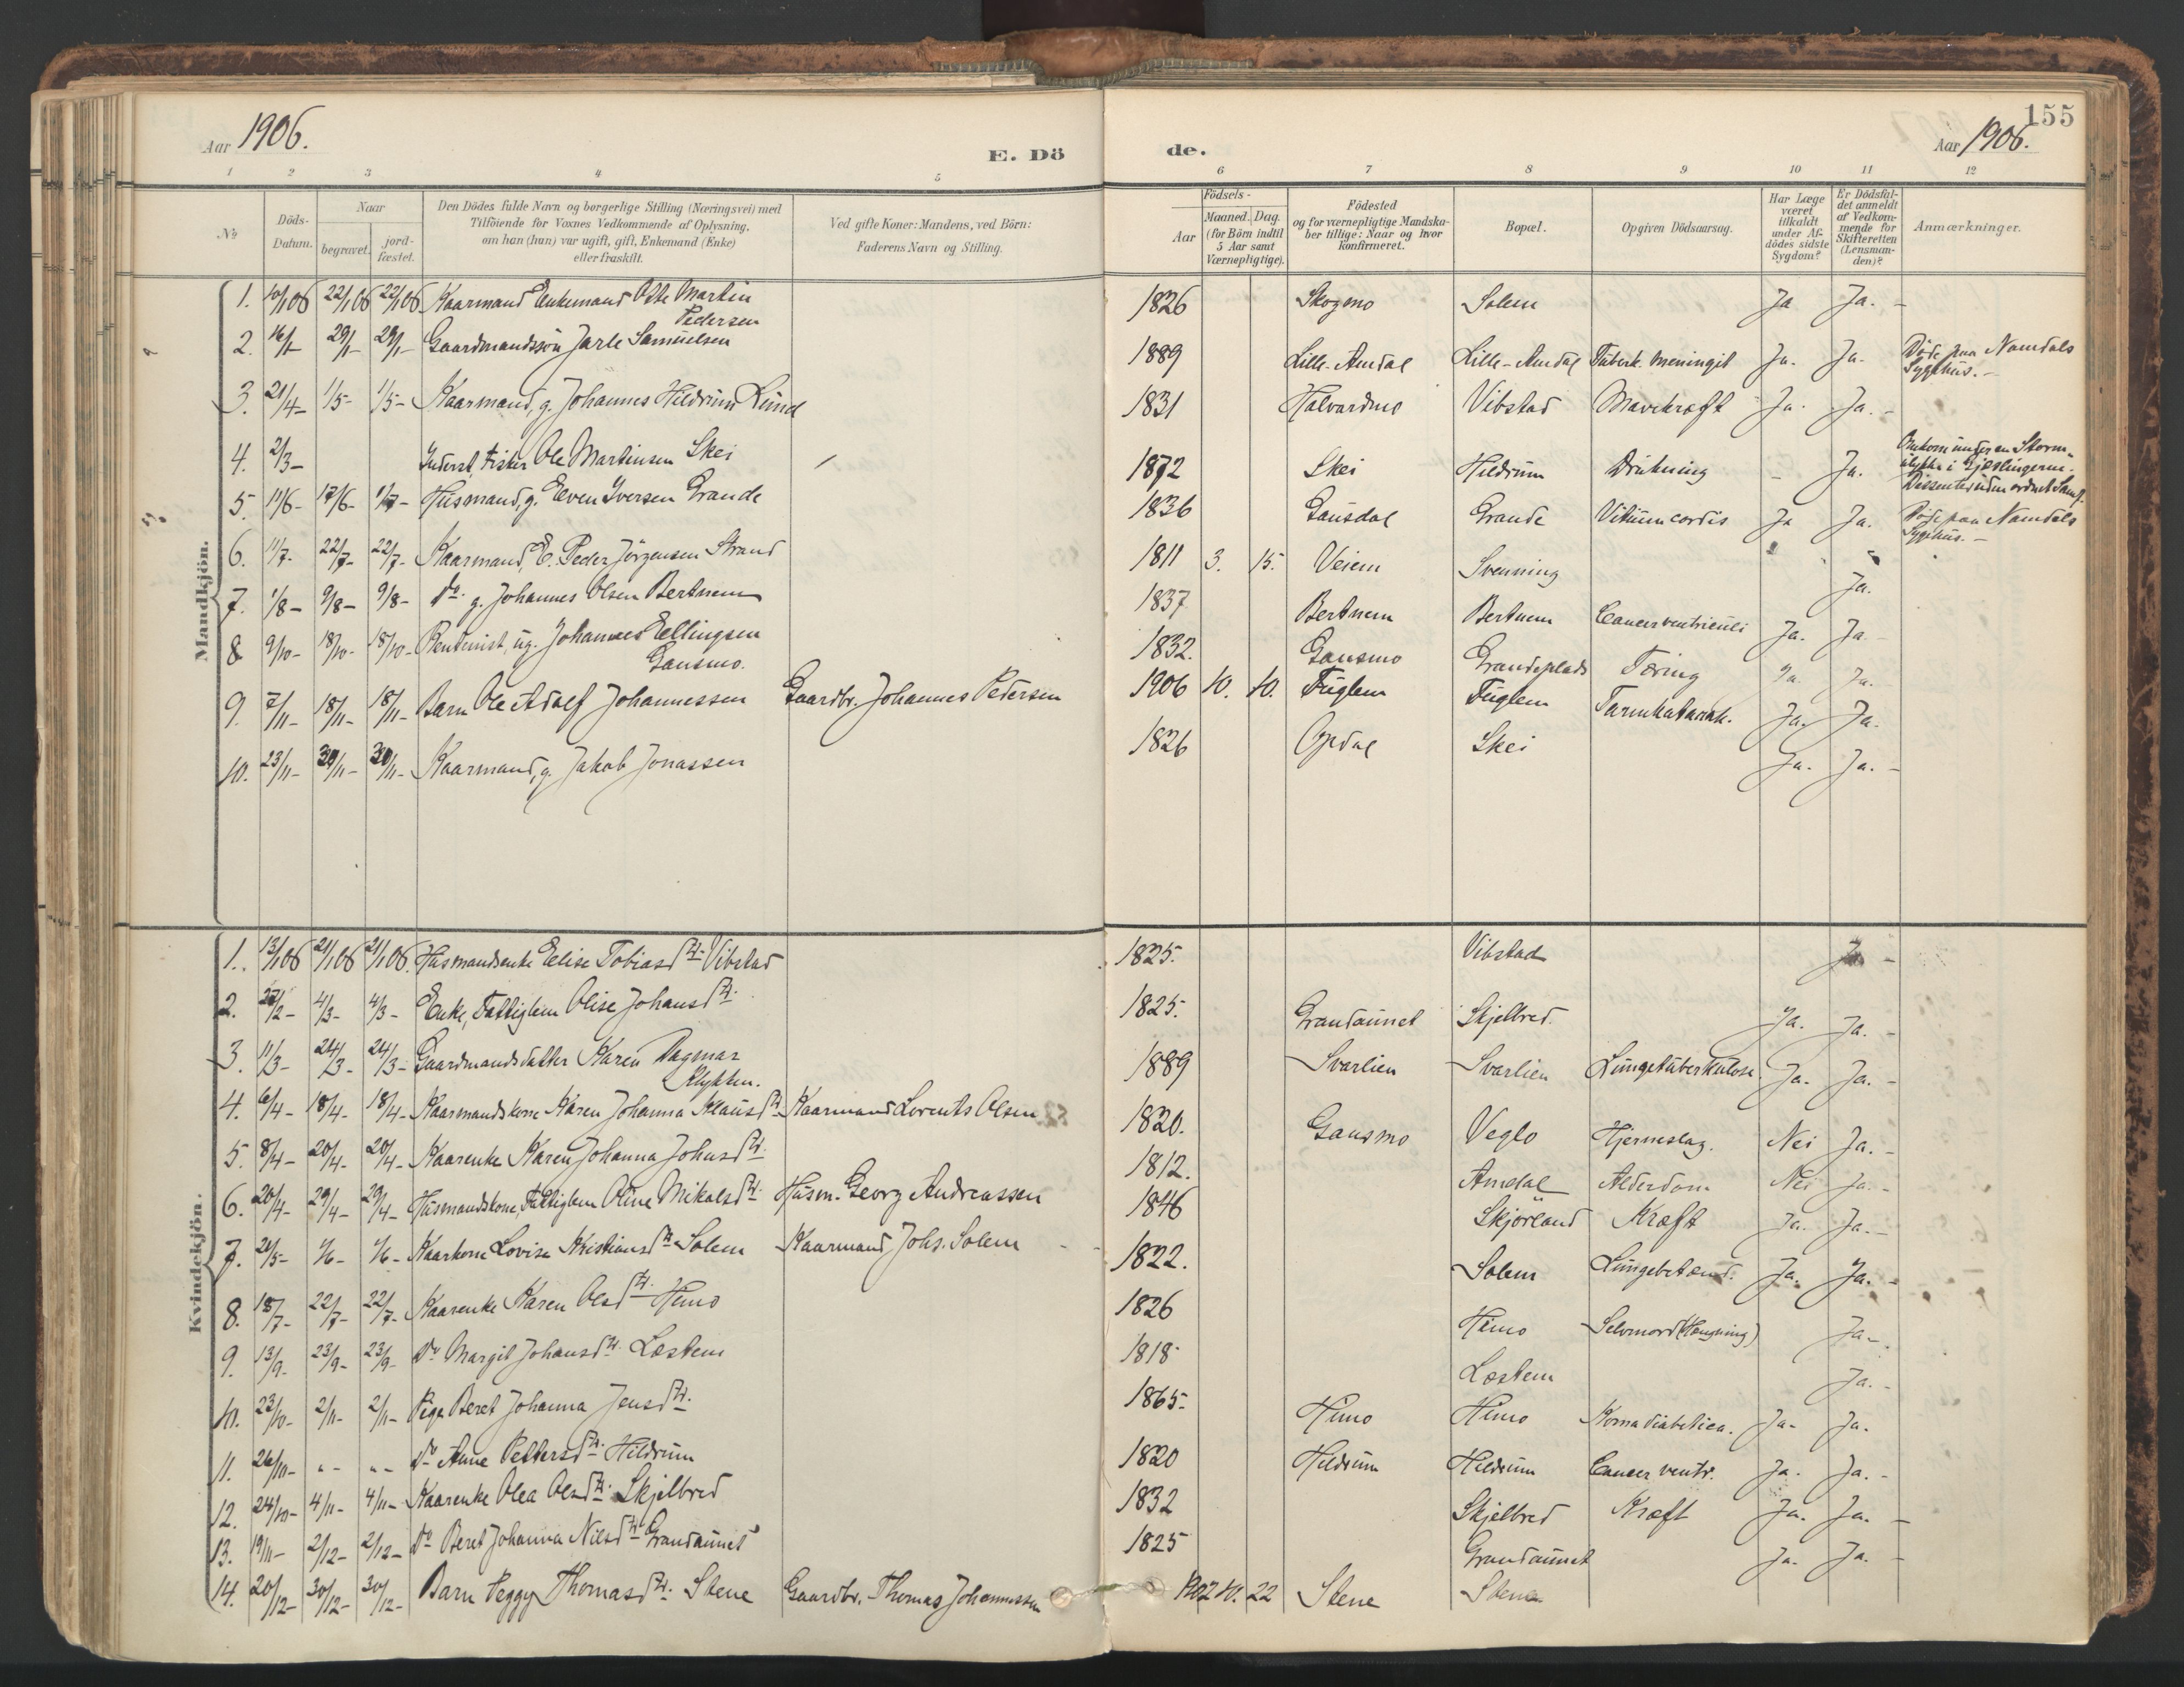 155
Aar 1906.
E. Dö
de.
Aar 1906.
1 2 3 4 5 6 7 8 9 10 11 12
No
Döds-Datum.
Naar
begravet. jord-fæstet.
Den Dödes fulde Navn og borgerlige Stilling (Næringsvei) med
Tilföiende for Voxnes Vedkommende af Oplysning,
om han (hun) var ugift, gift, Enkemand (Enke)
eller fraskilt.
Ved gifte Koner: Mandens, ved Börn:
Faderens Navn og Stilling.
Födsels-
Aar
Maaned. Dag.
(for Börn indtil
5 Aar samt
Værnepligtige).
Födested
og for værnepligtige Mandska-
ber tillige: Naar og hvor
Konfirmeret.
Bopæl.
Opgiven Dödsaarsag.
Har Læge
været
tilkaldt
under Af-
dödes sidste
Sygdom?
Er Dödsfal-
det anmeldt
af Vedkom-
mende for
Skifteretten
(Lensman-
den)?
Anmærkninger.
Mandkjön.
1. 10/1 06 22/1 06 22/1 06 Kaarmand Enkemand Martin Pedersen 1826 Skogmo Solem Ja Ja. -
2. 16/1- 29/1- 29/1- Gaardmandssön Jarle Samuelsen 1889 Lille-Amdal Lille-Amdal Tuberk. meningit Ja. Ja. Döde paa Namdals Sygehus. -
3. 21/4- 1/5- 1/5- Kaarmand, g. Johannes Hildrum Lund 1831 Halvardmo Vibstad Mavekræft Ja. Ja. -
4. 2/3- Inderst, Fisker Ole Martinsen Skei 1872 Skei Hildrum Drukning - Ja. Omkom under en Storm-ulykke i Gjæslingerne. Dissenter uden ordnet Samf.
5. 11/6- 17/6- 1/7- Husmand, g. Elven Iversen Grande 1836 Gausdal Grande Vitium cordis Ja Ja. Döde paa Namdals Sygehus. -
6. 11/7- 22/7- 22/7- Kaarmand, E. Peder Jörgensen Strand 1811 3. 15. Veiem Svenning Ja.
7. 1/8- 9/8- 9/8- Do. g. Johannes Olsen Bertnem 1837 Bertnem Bertnem Cancer ventriculi Ja. Ja
8. 9/10- 18/10- 18/10- Rentenist, ug. Johannes Ellingsen Gansmo. 1832. Gansmo Grandeplads Tæring Ja. Ja.
9. 7/11- 18/11- 18/11- Barn Ole Adolf Johannessen Gaardbr. Johannes Pedersen 1906 10. 10. Fuglem Fuglem Tarmkatarrh. Ja. Ja.
10. 23/11- 30/11- 30/11- Kaarmand, g. Jakob Jonassen 1826 Opdal Skei Ja. Ja. -
Kvindekjön.
1. 13/1 06 21/1 06 21/1 06. Husmandsenke Elise Tobiasdtr. Vibstad 1825. Vibstad Ja -
2. 27/2- 4/3- 4/3- Enke, Fattiglem Olise Johansdtr. 1825. Grandaunet Skjelbred. Ja. Ja. -
3. 11/3- 24/3- 24/3- Gaardmandsdatter Karen Dagmar Klykken. 1889 Svarlien Svarlien Lungetuberkulose. Ja. Ja. -
4. 6/4- 18/4- 18/4- Kaarmandskone Karen Johanna Klausdtr. Kaarmand Lorents Olsen 1820. Gansmo Veglo Hjerneslag. Nei Ja. -
5. 8/4- 20/4- 20/4- Kaarenke Karen Johanna Johnsdtr. 1812. Amdal Alderdom Nei Ja. -
6. 20/4- 29/4- 29/4- Husmandskone, Fattiglem Oline Mikalsdtr. Husm. Georg Andreassen 1846 Skjörland Kræft Ja. Ja. -
7. 21/5- 1/6- 1/6- Kaarkone Lovise Kristiansdtr. Solem Kaarmand Johs. Solem 1822. Solem Lungebetænd. Ja. Ja. -
8. 18/7- 22/7- 22/7- Kaarenke Karen Olsdtr. Himo 1826 Himo Selvmord (Hængning) Ja -
9. 13/9- 23/9- 23/9- Do Margit Johansdtr. Læstem 1818 Læstem Ja. -
10. 23/10- 2/11- 2/11- Pige Beret Johanna Jensdtr. 1865. Himo Himo Koma diabetica. Ja. Ja.
11. 26/10- "- "- Do Anne Pettersdtr. Hildrum 1820 Hildrum Hildrum Cancer ventr. Ja. Ja. -
12. 24/10- 4/11- 4/11- Kaarenke Olea Olsdtr. Skjelbred 1832 Skjelbred Kræft Ja. Ja. -
13. 19/11- 2/12- 2/12- Do Beret Johanna Nilsdtr. Grandaunet 1825 Grandaunet Ja. Ja. -
14. 20/12- 30/12- 30/12- Barn Peggy Thomasdtr. Stene Gaardbr. Thomas Johannessen 1902 10. 22 Stene Stene